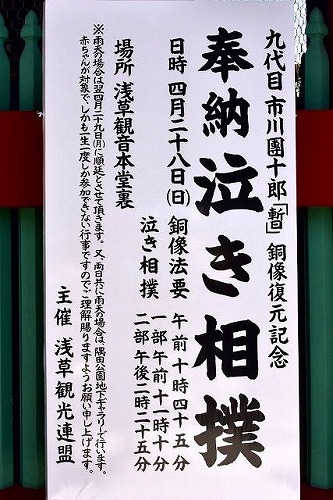 九代目 市川團十郎「暫」 銅像復元記念
奉納泣き相撲
日時 四月二十八日(日) 銅像法要 午前十時四十五分
泣き相撲 一部午前十一時十分
二部午後二時二十五分
場所 浅草観音本堂裏
※雨天の場合は翌四月二十九日(月)に順延とさせて頂きます。又、両日共に雨天の場合は、隅田公園地下ギャラリーで行います。
赤ちゃんが対象で、しかも一生一度しか参加できない行事ですのでご理解賜りますようお願い申し上げます。
主催 浅草観光連盟